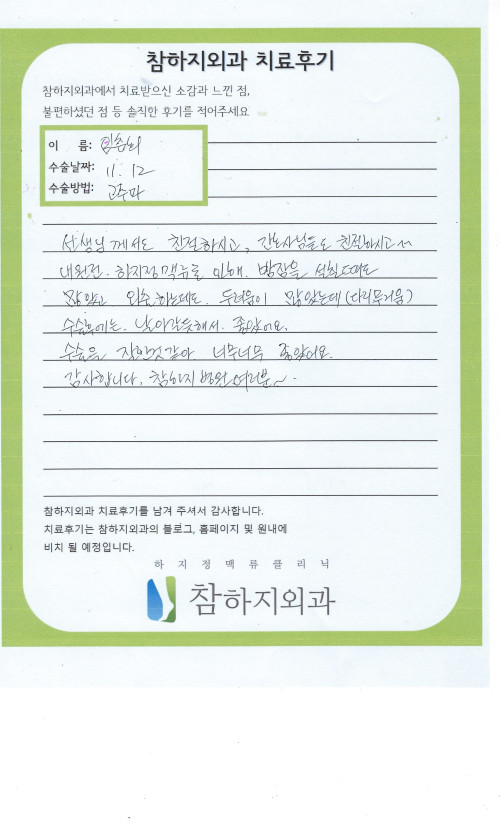 참하지외과 치료후기
참하지외과에서 치료받으신 소감과 느낀 점,
불편하셨던 점 등 솔직한 후기를 적어주세요
이 름:
수술날짜: 11. 12
수술방법: 고주파
선생님께서도 친절하시고, 간호사님들도 친절하시고~
내원전. 하지정맥류로 인해. 밤잠을 설칠때도
많았고 외출하는데도. 두려움이 많았는데 (다리무거움)
수술후에는. 날아갈듯해서. 좋았어요.
수술은 잘한것같아 너무너무 좋았어요.
감사합니다, 참하지 병원 여러분~.
참하지외과 치료후기를 남겨 주셔서 감사합니다.
치료후기는 참하지외과의 블로그, 홈페이지 및 원내에
비치 될 예정입니다.
하지정맥류클리닉
참하지외과